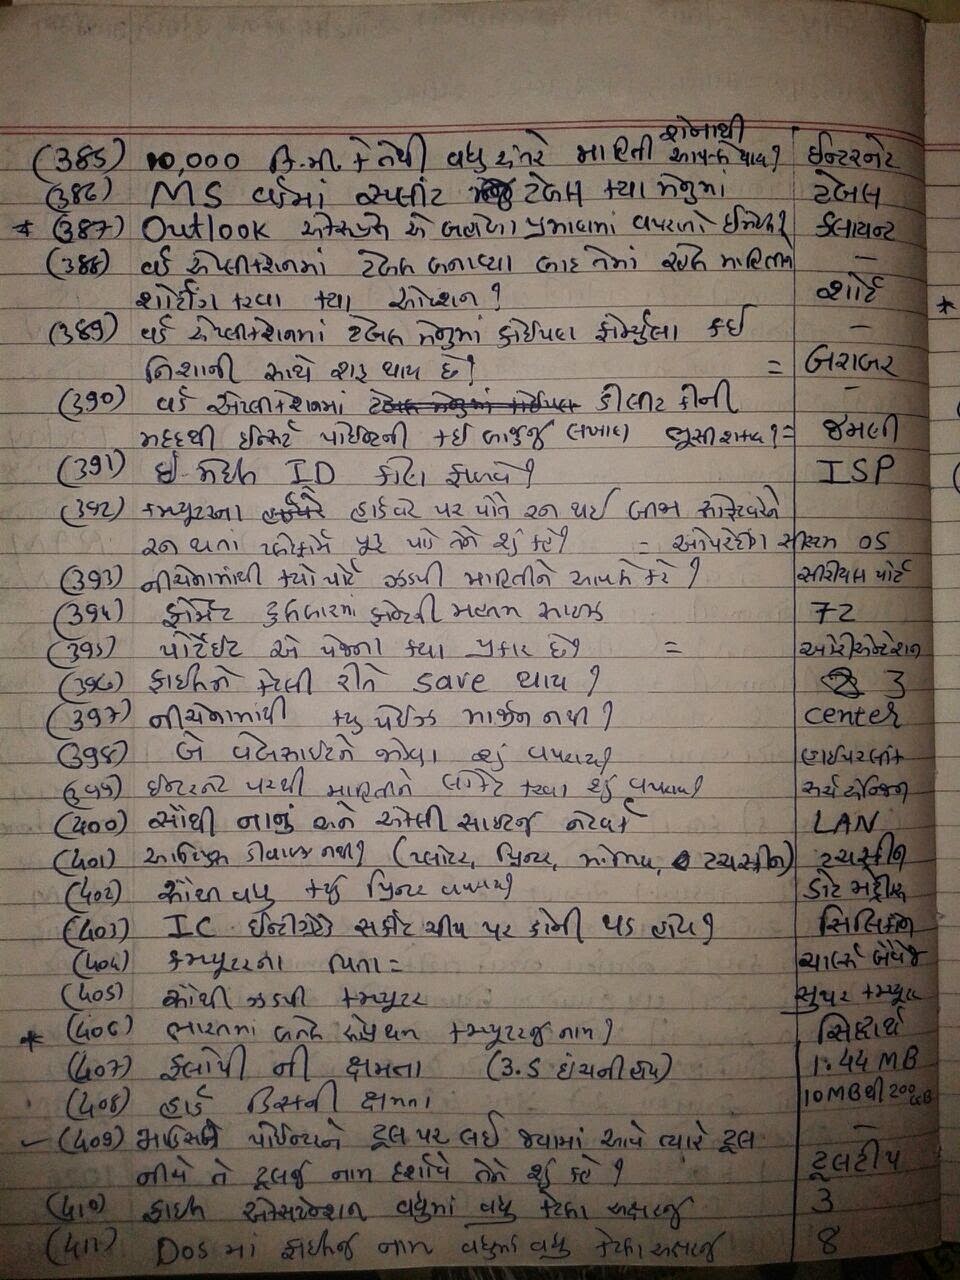 (385) 10,000 કિ.મી. કે તેથી વધુ અંતરે માહિતી શેનાથી આપલે થાય? ઈન્ટરનેટ
(386) MS વર્ડમાં સ્પ્લીટ ટેબલ ક્યા મેનુમાં ટેબલ
* (387) Outlook એક્સપ્રેસ એ બહોળા પ્રમાણમાં વપરાતો ઈમેઈલ? ક્લાયન્ટ
(388) વર્ડ એપ્લીકેશનમાં ટેબલ બનાવ્યા બાદ તેમાં રહેલ માહિતીને —
શોર્ટીંગ કરવા ક્યા ઓપ્શન? શોર્ટ
(389) વર્ડ એપ્લીકેશનમાં ટેબલ મેનુમાં કોઈપણ ફોર્મ્યુલા કઈ —
નિશાની સાથે શરૂ થાય છે? = બરાબર
(390) વર્ડ એપ્લીકેશનમાં ડીલીટ કીની —
મદદથી ઈન્સર્ટ પોઈન્ટની કઈ બાજુનુ લખાણ ભૂસી શકાય? = જમણી
(391) ઈ-મેઈલ ID કોણ ફાળવે? ISP
(392) કમ્પ્યુટરના હાર્ડવેર પર પોતે રન થઈ બીજા સોફ્ટવેરને
રન થતાં પ્લેટફોર્મ પૂરૂ પાડે તેને શું કહે? = ઓપરેટીંગ સીસ્ટમ OS
(393) નીચેનામાંથી ક્યો પોર્ટ ઝડપી માહિતીને આપલે કરે? સીરીયલ પોર્ટ
(394) ફોર્મેટ ટુલબારમાં ફોન્ટની મહત્તમ સાઈઝ 72
(395) પોર્ટ્રેઈટ એ પેજના ક્યા પ્રકાર છે? = ઓરીએન્ટેશન
(396) ફાઈલને કેટલી રીતે save થાય? 3
(397) નીચેનામાંથી ક્યુ પેઈઝ માર્જીન નથી? center
(398) બે વેબસાઈટને જોડવા શું વપરાય? હાઈપરલીંક
(399) ઈન્ટરનેટ પરથી માહિતીને લોકેટ કરવા શું વપરાય? સર્ચ એન્જિન
(400) સૌથી નાનું અને એકલી સાઈટનુ નેટવર્ક LAN
(401) આઉટપુટ ડીવાઈઝ નથી? (પ્લોટર, પ્રિન્ટર, મોનીટર, ટચસ્ક્રીન) ટચસ્ક્રીન
(402) સૌથી વધુ ક્યું પ્રિન્ટર વપરાય? ડોટ મેટ્રીક્ષ
(403) IC ઈન્ટીગ્રેટેડ સર્કીટ ચીપ પર કોની પડ હોય? સિલિકોન
(404) કમ્પ્યુટરના પિતા = ચાર્લ્સ બેબેજ
(405) સૌથી ઝડપી કમ્પ્યુટર સુપર કમ્પ્યુટર
* (406) ભારતમાં બનેલ સૌપ્રથમ કમ્પ્યુટરનુ નામ? સિદ્ધાર્થ
(407) ફ્લોપી ની ક્ષમતા (3.5 ઇંચની હોય) 1.44 MB
(408) હાર્ડ ડિસ્કની ક્ષમતા 10 MB થી 200 GB
– (409) માઉસને પોઈન્ટરને ટૂલ પર લઈ જવામાં આવે ત્યારે ટૂલ —
નીચે તે ટૂલનું નામ દર્શાવે તેને શું કહે? ટૂલટીપ
(410) ફાઈલ એક્સટેન્શન વધુમાં વધુ કેટલા અક્ષરનું 3
(411) Dos માં ફાઈલનુ નામ વધુમાં વધુ કેટલા અક્ષરનુ 8